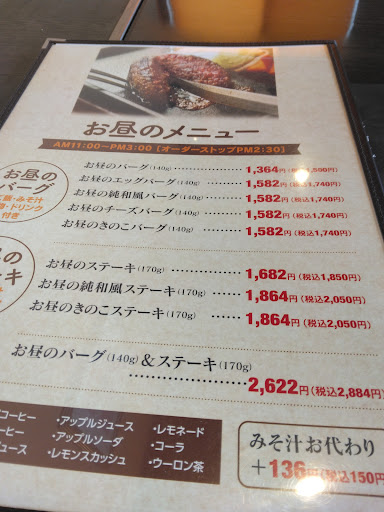 お昼のメニュー
AM11:00〜PM3:00【オーダーストップPM2:30】
お昼の
バーグ
みそ汁
ドリンク
付き
お昼のバーグ(140g) 1,364円(税込1,500円)
お昼のエッグバーグ(140g) 1,582円(税込1,740円)
お昼の純和風バーグ(140g) 1,582円(税込1,740円)
お昼のチーズバーグ(140g) 1,582円(税込1,740円)
お昼のきのこバーグ(140g) 1,582円(税込1,740円)
お昼のステーキ(170g) 1,682円(税込1,850円)
お昼の純和風ステーキ(170g) 1,864円(税込2,050円)
お昼のきのこステーキ(170g) 1,864円(税込2,050円)
お昼のバーグ(140g)&ステーキ(170g)
2,622円(税込2,884円)
コーヒー ・アップルジュース ・レモネード
ーヒー ・アップルソーダ ・コーラ
ュース ・レモンスカッシュ ・ウーロン茶
みそ汁お代わり
+136円(税込150円